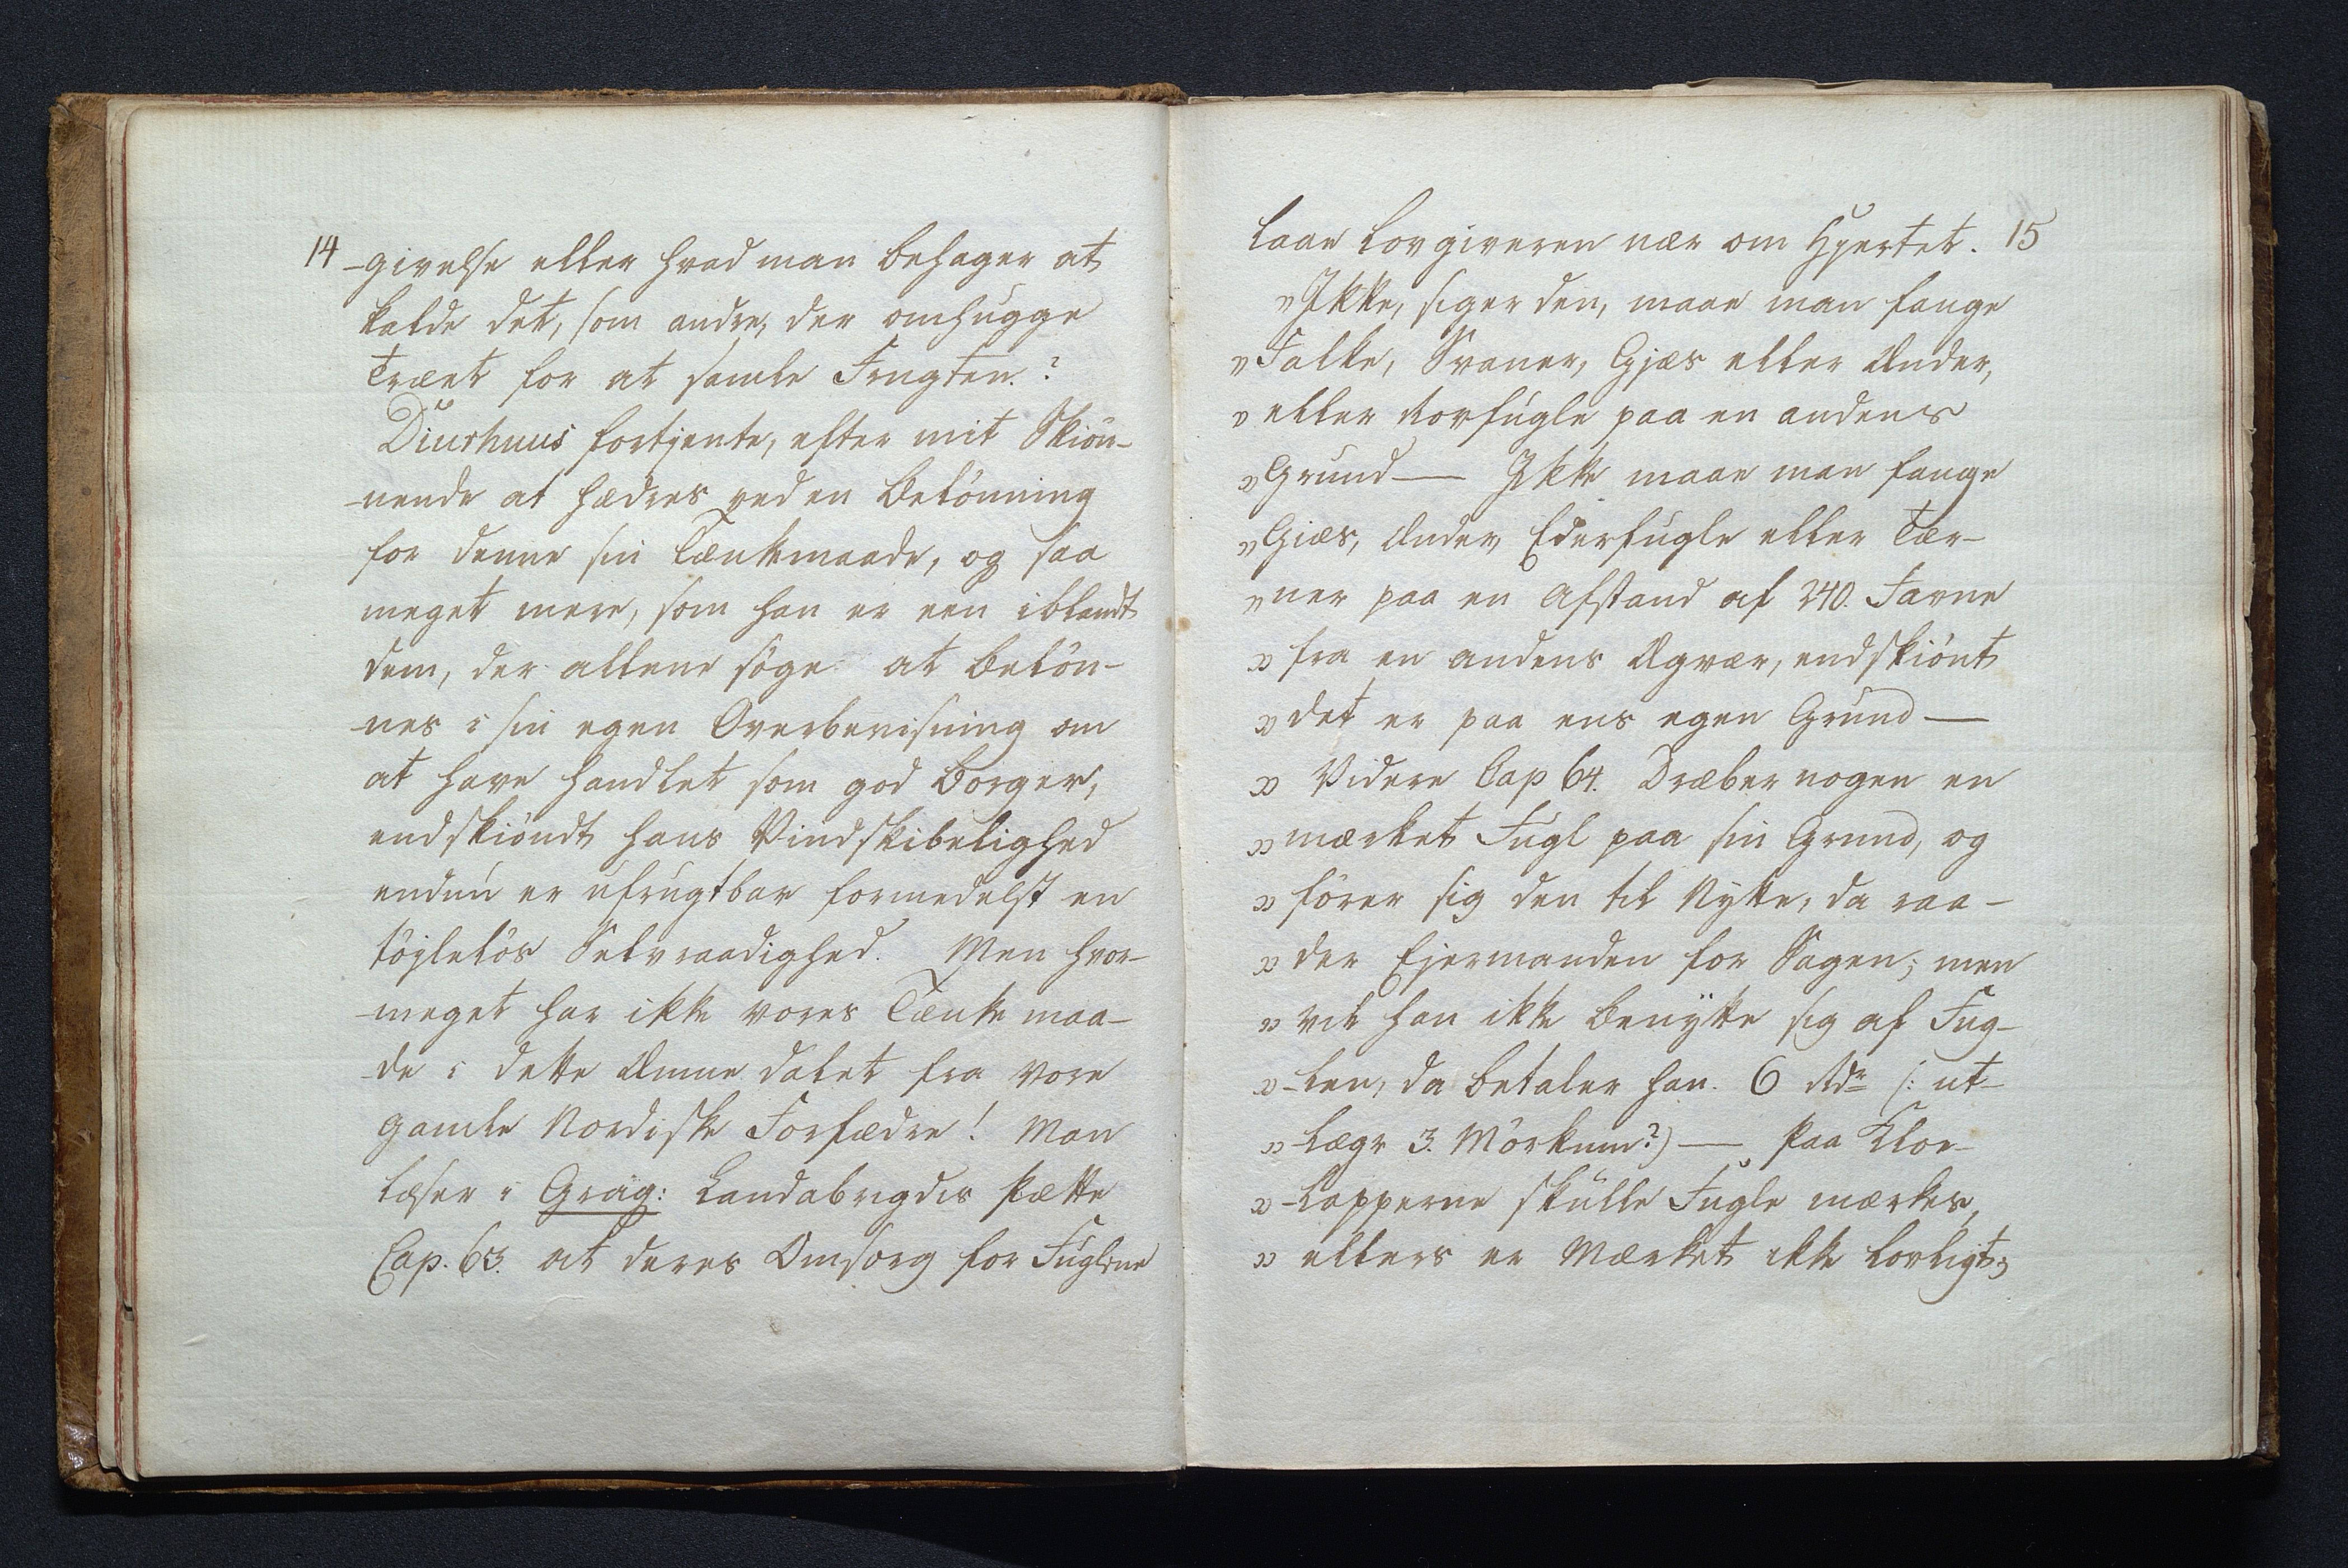 14
-givelse eller hvad man behager at
kalde det, som andre, der omhugge
Træet for at samle Frugten?
Diurhuus fortjente, efter mit Skiön-
-nende at hædres ved en Belönning
for denne sin Tænkemaade, og saa
meget mere, som han er een iblandt
dem, der allene söge at belön-
-nes i sin egen Overbeviisning om
at have handlet som god Borger,
endskiöndt hans Vindskibelighed
endnu er ufrugtbar formedelst en
töjlelös Selvraadighed. Men hvor-
-meget har ikke vores Tænkemaa-
-de i dette Ämne dalet fra vore
gamle Nordiske Forfædre! Man
læser i Gräg: Landabrigdis Þætte
Cap. 63. at deres Omsorg for Fuglene
15
laae Lovgiveren nær om Hjertet.
"Ikke, siger den, maae man fange
"Falke, Svaner, Gjæs eller Ænder,
"eller Rovfugle paa en andens
"Grund — Ikke maae man fange
"Giæs, Ænder, Ederfugle eller Tær-
"ner paa en Afstand af 240. Favne
"fra en andens Ægvær, endskiönt
"det er paa ens egen Grund —
"Videre Cap 64. Dræber nogen en
"mærket Fugl paa sin Grund, og
"förer sig den til Nytte, da raa-
"der Ejermanden for Sagen; men
"vil han ikke benytte sig af Fug-
"-len, da betaler han 6 Rdr (: ut-
"-lægr 3. Mörkum?) — Paa Kloe-
"-lapperne skulle Fugle mærkes,
"ellers er Mærket ikke lovligt;